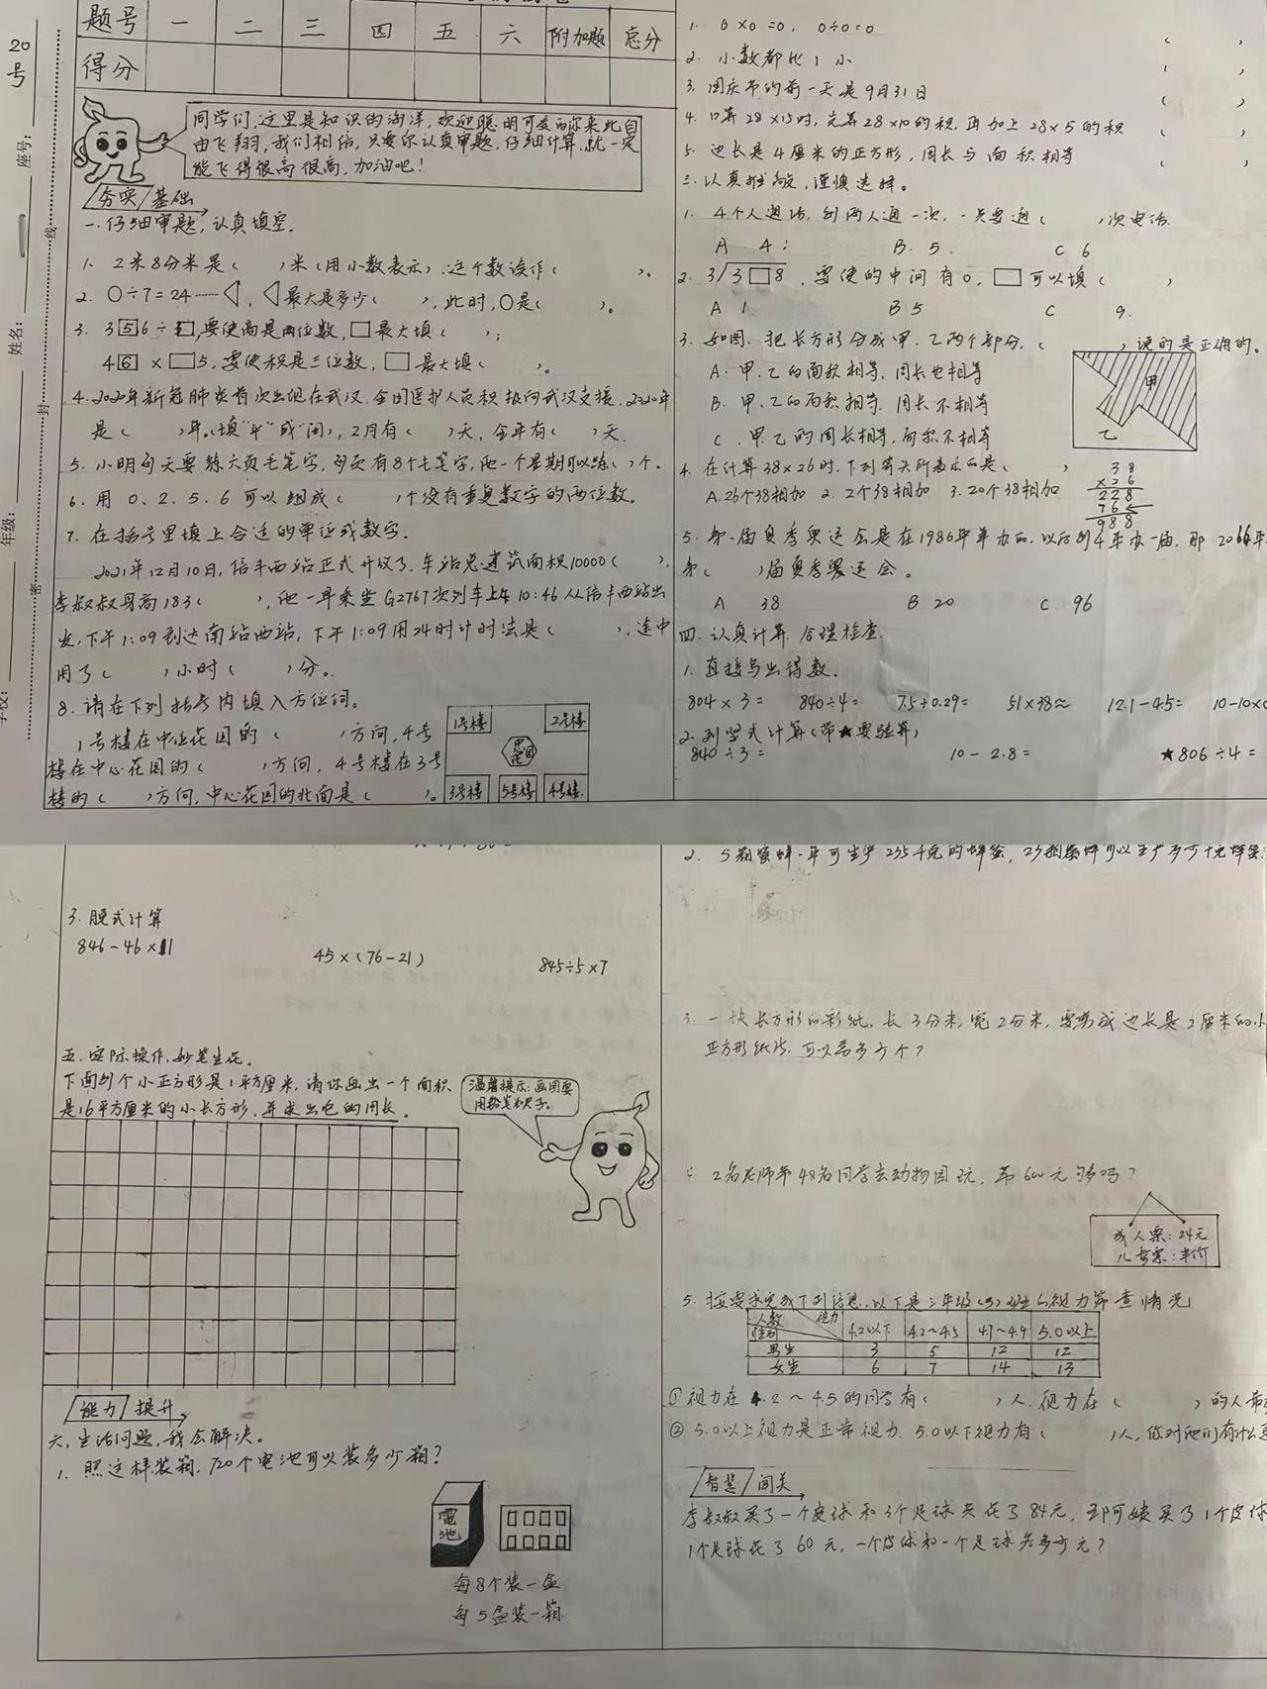 题号 一 二 三 四 五 六 附加题 总分
得分
20号
座号:
姓名:
年级:
学校:
线
封
密
同学们,这里是知识的海洋,欢迎聪明可爱的你来此自
由飞翔,我们相信,只要你认真审题,仔细计算,就一定
能飞得很高很高,加油吧!
夯实基础
一.仔细审题,认真填空.
1. 2米8分米是( )米(用小数表示),这个数读作( )。
2. ○÷7=24……◁, ◁最大是多少( ),此时,○是( )。
3. 3⃞56÷□,要使商是两位数,□最大填( );
4⃞6×□5,要使积是三位数,□最大填( )。
4.2020年新冠肺炎首次出现在武汉.全国医护人员积极向武汉支援.2020年
是( )年。(填"平"或"闰"),2月有( )天,全年有( )天.
5.小明每天要练六页毛笔字,每页有8个毛笔字,他一个星期可以练( )个.
6.用 0、2、5、6 可以组成( )个没有重复数字的两位数.
7.在括号里填上合适的单位或数字.
2021年12月10日,信丰西站正式开放了.车站总建筑面积10000( ),
李叔叔身高183( ),他一早乘坐G2767次列车上午10:46从信丰西站出
发,下午1:09到达南站西站,下午1:09用24时计时法是( ),途中
用了( )小时( )分。
8.请在下列括号内填入方位词。
1号楼在中心花园的( )方向,4号
楼在中心花园的( )方向,4号楼在3号
楼的( )方向,中心花园的北面是( )。
1号楼 2号楼
3号楼 5号楼 4号楼
1. 0×0=0, 0÷0=0 ( )
2. 小数都比1小 ( )
3. 国庆节的前一天是9月31日 ( )
4. 口算28×15时,先算28×10的积,再加上28×5的积 ( )
5. 边长是4厘米的正方形,周长与面积相等 ( )
三.认真推敲,谨慎选择。
1. 4个人通话,每两人通一次,一共要通( )次电话.
A 4; B. 5. C 6
2. 3/3□8,要使的中间有0,□可以填( )
A 1 B 5 C 9.
3. 如图,把长方形分成甲、乙两个部分,( )说的是正确的。
A.甲、乙的面积相等,周长也相等
B.甲、乙的面积相等.周长不相等
C.甲、乙的周长相等,面积不相等
甲
乙
4. 在计算38×26时,下列箭头所表示的是( )
A.26个38相加 2. 2个38相加 3. 20个38相加
38
×26
228
76
988
5. 第一届奥季奥运会是在1986年举办的,以后每4年办一届,那2066年
第( )届奥季奥运会。
A 38 B 20 C 96
四.认真计算.合理检查.
1.直接写出得数.
804×3= 840÷4= 7.5+0.29= 51×38≈ 12.1-4.5= 10-10×0
2.列竖式计算(带★要验算)
840÷3= 10-2.8= ★806÷4=
3.脱式计算
846-46×11
45×(76-21)
845÷5×7
五.实际操作.妙笔生花.
下面每个小正方形是1平方厘米,请你画出一个面积
是16平方厘米的小长方形,并求出它的周长.
温馨提示:画图要
用铅笔和尺子.
能力提升
六.生活问题,我会解决。
1. 照这样装箱,720个电池可以装多少箱?
電池
每8个装一盒
每5盒装一箱
2. 5箱蜜蜂一年可生产235千克的蜂蜜,25箱蜜蜂可以生产多少千克蜂蜜
3. 一块长方形的彩纸,长3分米,宽2分米,要剪成边长是2厘米的小
正方形纸片.可以剪多少个?
4 2名老师带48名同学去动物园玩,带600元够吗?
成人票:24元
儿童票:半价
5. 按要求完成下列信息,以下是三年级(5)班的视力筛查情况
人数 视力
性别
4.2以下 4.2~4.5 4.7~4.9 5.0以上
男生 3 5 12 12
女生 6 7 14 13
①视力在4.2~4.5的同学有( )人.视力在( )的人
②5.0以上视力是正常视力.5.0以下视力有( )人,你对他们有什么
智慧闯关
李叔叔买了一个皮球和3个足球共花了84元,王阿姨买了1个皮球
1个足球花了60元,一个皮球和一个足球共多少元?